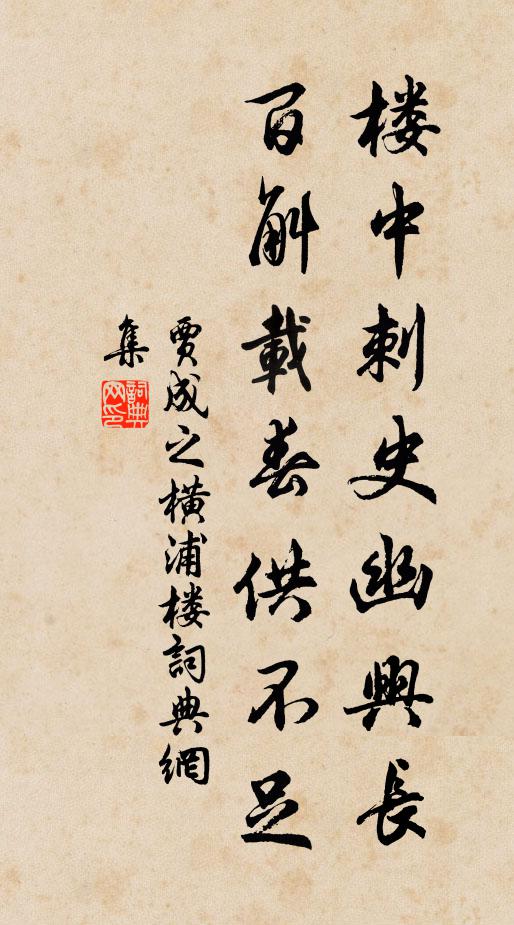 楼中刺史幽興長
百斛載春供不足
賈成之橫浦楼詞典網
集
詞典
网印